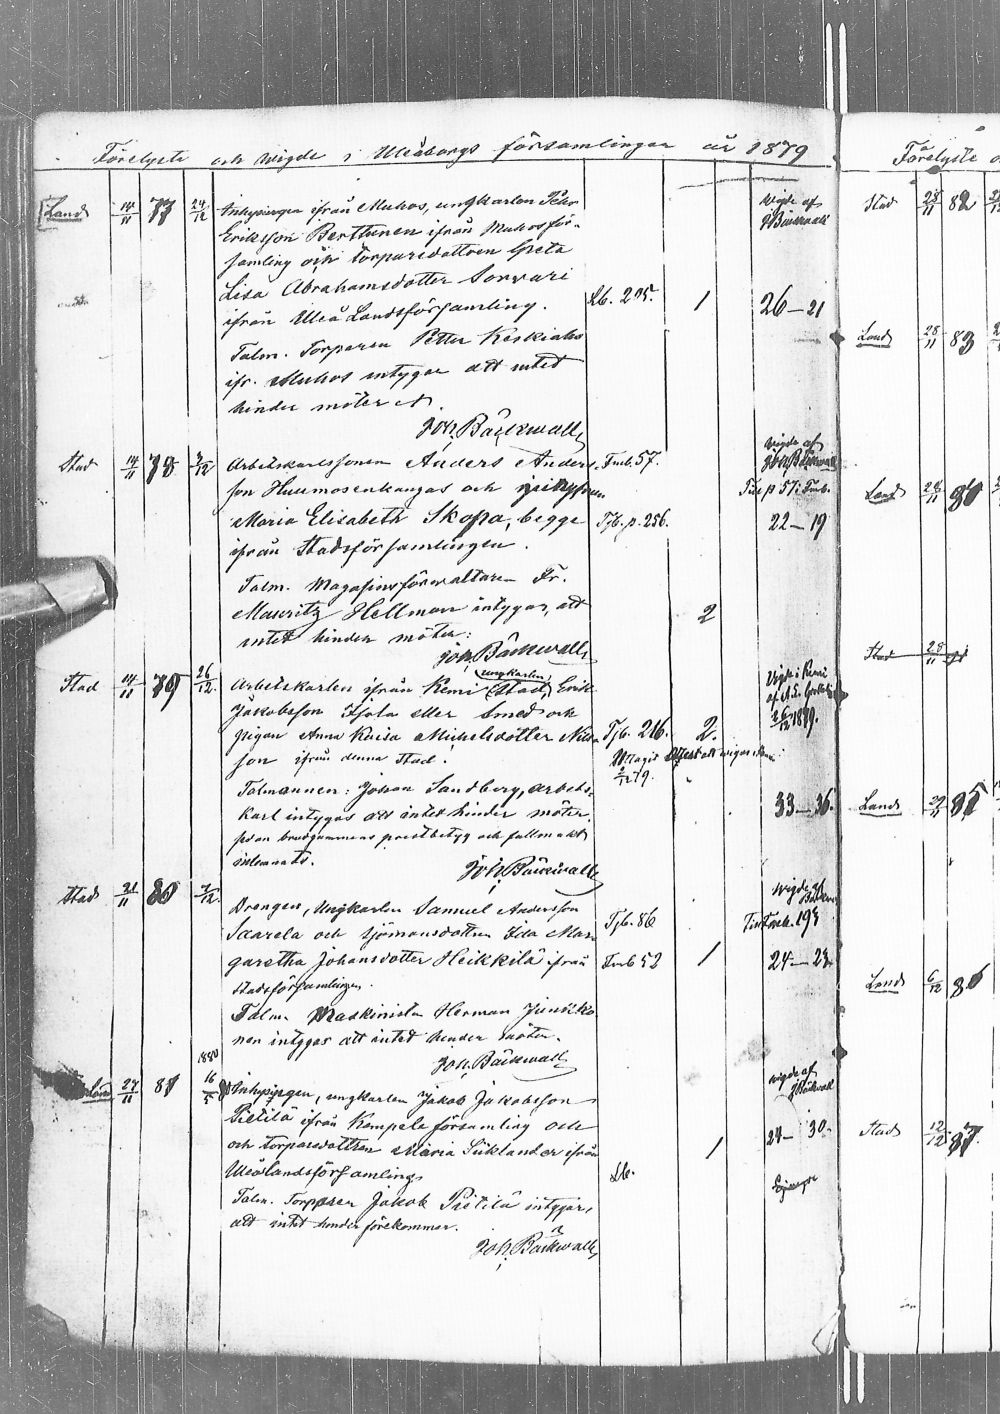 Förelyste och wigde i Uleåborgs församlingar år 1879
Land 14/11 77 24/12 Inhysingen ifrån Muhos, ungkarlen Pehr
Eriksson Berthunen ifrån Muhosför-
samling och torparedottren Greta
Lisa Abrahamsdotter Sorvari
ifrån Uleå Landsförsamling. Lb. 225. 1 26—21
Talm. Torparen Petter Keskiaho
ifr. Muhos intygar att intet
hinder möter
Joh. Bäckwall
wigde af
J Bäckwall
Stad 14/11 78 /12 Arbetskarlssonen Anders Anders- Fmb. 57.
son Huumosenkangas och
Maria Elisabeth Skopa, begge Tjb. p. 256. 22—19
ifrån Stadsförsamlingen.
Talm. Magasinsförvaltaren Fr.
Mauritz Hellman intygar, att 2
intet hinder möter:
Joh. Bäckwall
wigde af
Joh Bäckwall
p 57 i Fmb.
Stad 14/11 79 26/12. Arbetskarlen ifrån Kemi Stad, ungkarlen Erik
Jakobsson Hjota eller Smed och
pigan Anna Kaisa Michelsdotter Nils- Tjb. 216. 2.
son ifrån denna Stad.
Uttagit Attest att wigas i Kemi
2/12 79.
Talmannen: Johan Sandberg, arbets-
karl intygar att intet hinder möter. 33—36.
brudgummens prestbetyg och fullmakt
inlemnats.
Joh. Bäckwall
Vigde i Kemi
26/12 1879.
Stad 21/11 80 7/12. Drengen, Ungkarlen Samuel Andersson
Saarela och sjömansdottren Ida Mar- Tjb. 86
garetha Johansdotter Heikkilä ifrån Fmb 52 1 24—23.
stadsförsamlingen.
Talm. Maskinisten Herman Juntiko-
nen intygar att intet hinder möter.
Joh. Bäckwall
wigde af
Bäckwall
Fmb. 193
Land 27/11 81 1880 16/5 Inhysingen, ungkarlen Jakob Jakobsson
Pietilä ifrån Kempele församling och
och torparedottren Maria Siiklander ifrån 1 24— 30.
Uleålandsförsamling. Lb.
Talm. Torparen Jakob Pietilä intygar,
att intet hinder förekommer.
Joh. Bäckwall
wigde af
J Bäckwall
Förelyste o
Stad 28/11 82
Land 28/11 83
Land 28/11 84
Stad 28/11
Land 29/11 85
Land 6/12 86
Stad 12/12 87